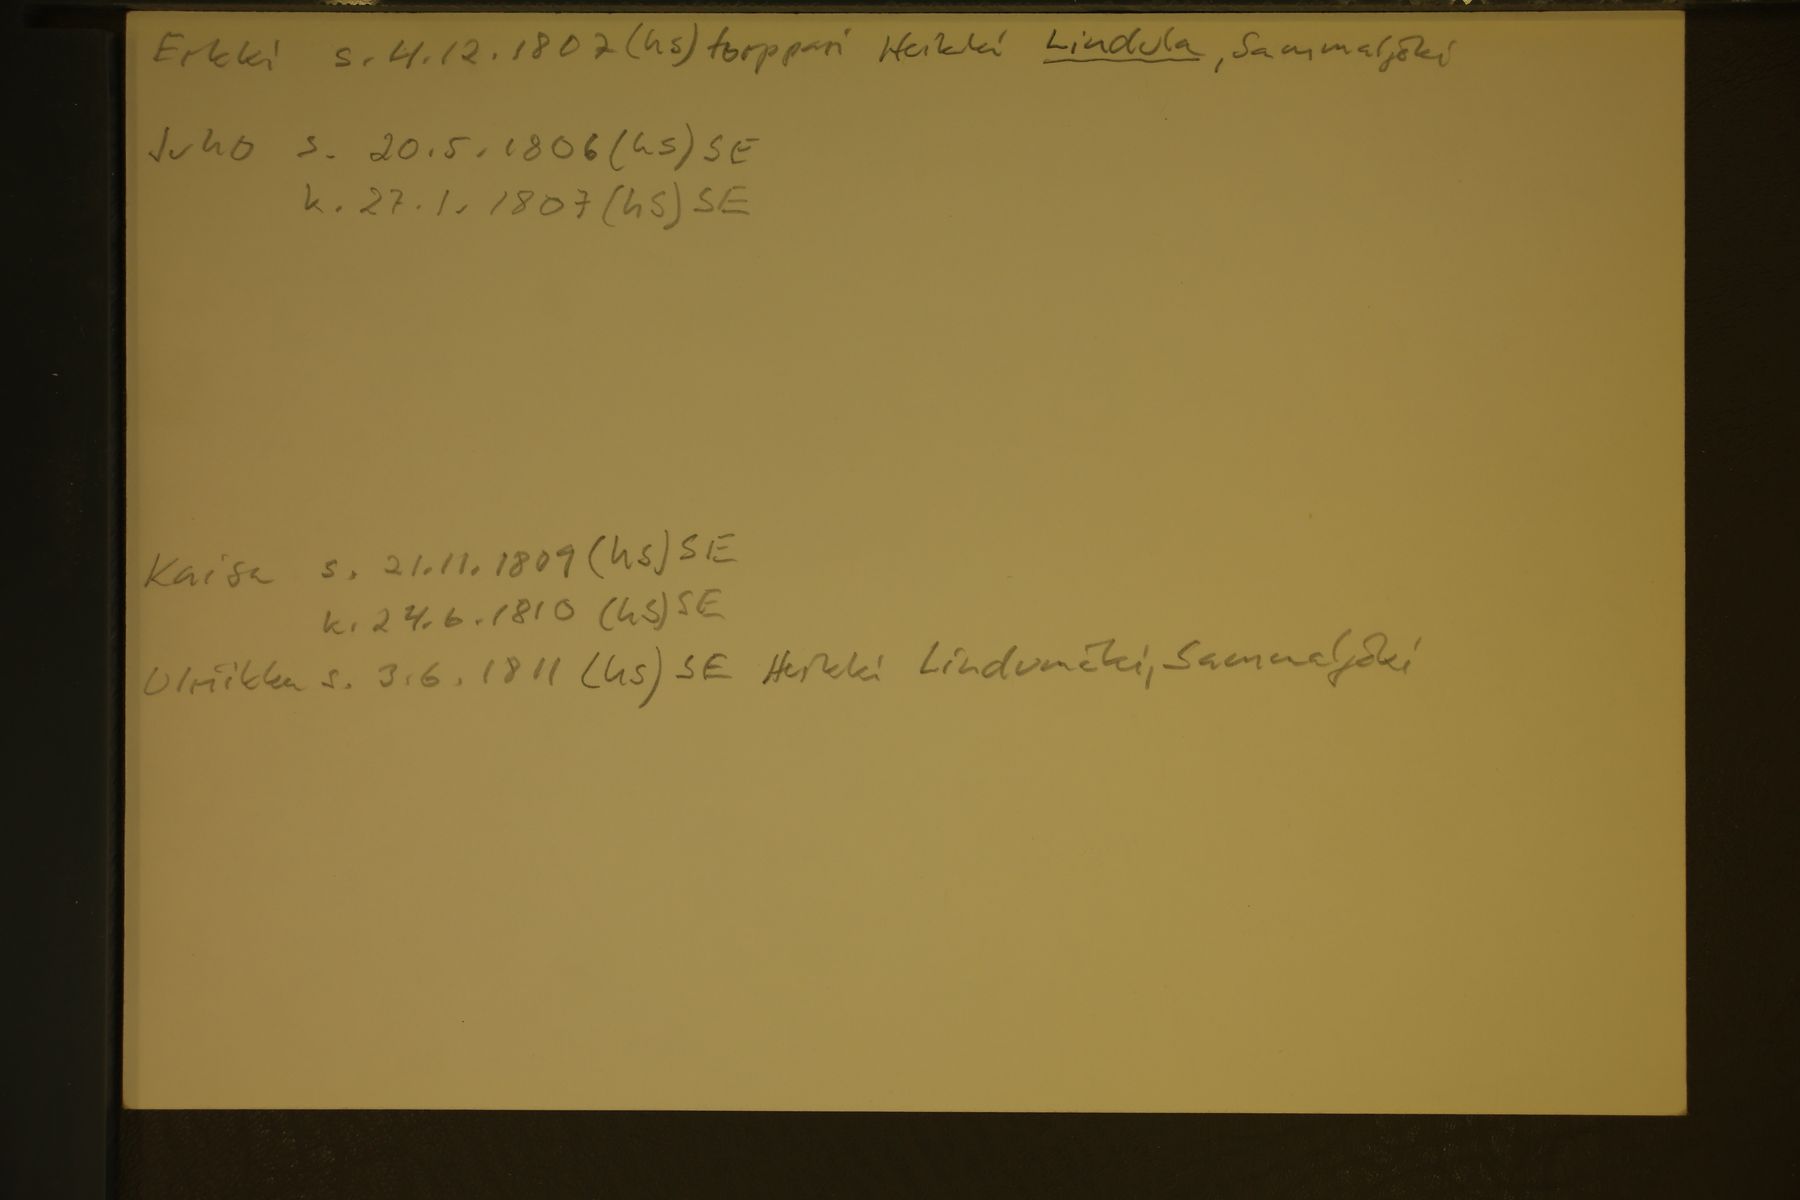 Erkki s. 4.12.1807 (hs) torppari Heikki Lindula, Sammaljoki
Juho s. 20.5.1806 (hs) SE
k. 27.1.1807 (hs) SE
Kaisa s. 21.11.1809 (hs) SE
k. 24.6.1810 (hs) SE
Ulriikka s. 3.6.1811 (hs) SE Heikki Lindumäki, Sammaljoki